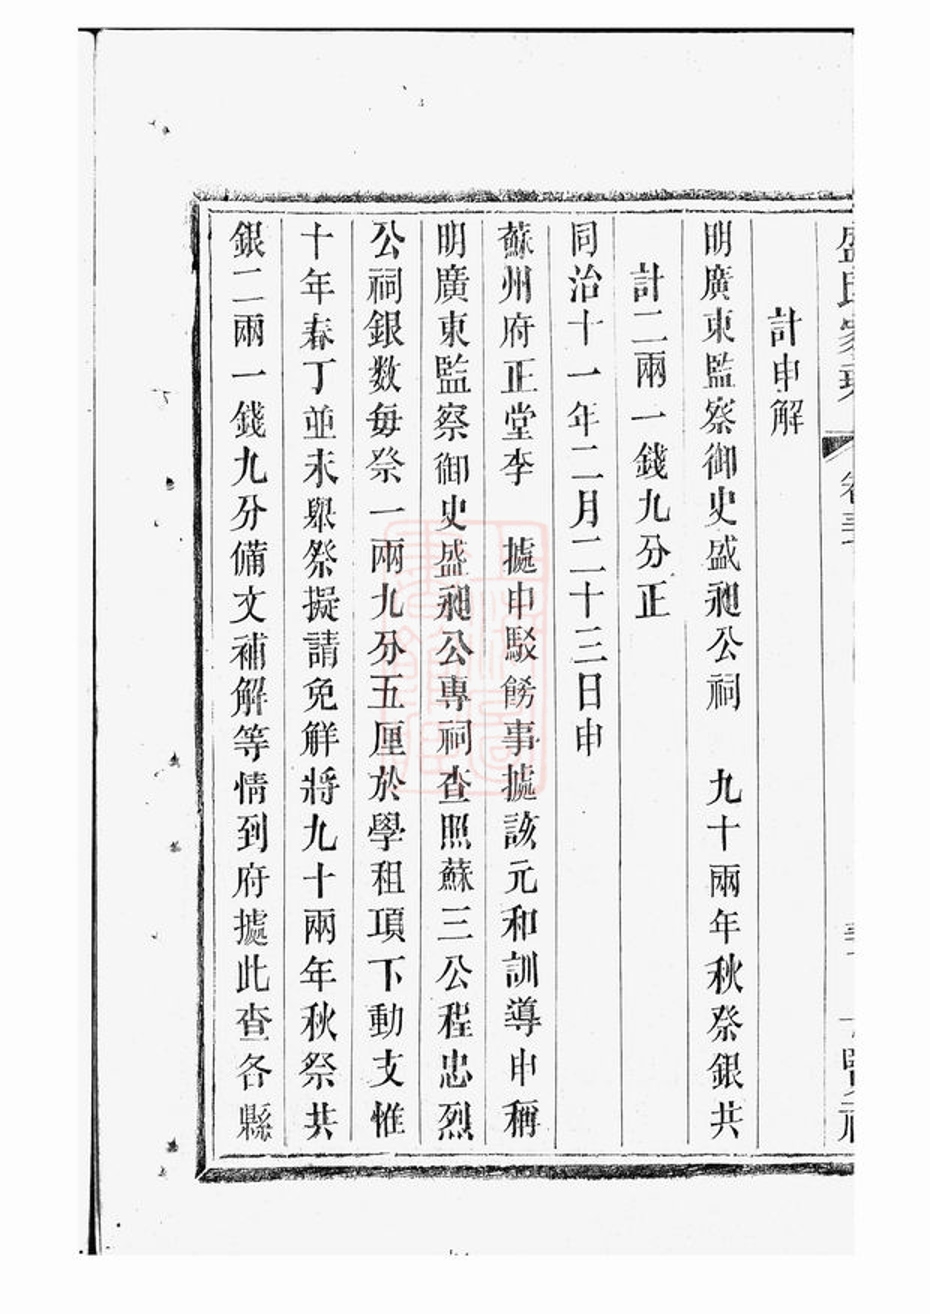 盛氏家乘
計申解
明廣東監察御史盛昶公祠　九十兩年秋祭銀共
計二兩一錢九分正
同治十一年二月二十三日申
蘇州府正堂李　據申駁餝事據該元和訓導申稱
明廣東監察御史盛昶公專祠查照蘇三公程忠烈
公祠銀数每祭一兩九分五厘於學租項下動支惟
十年春丁並未舉祭擬請免觧將九十兩年秋祭共
銀二兩一錢九分備文補解等情到府據此查各縣